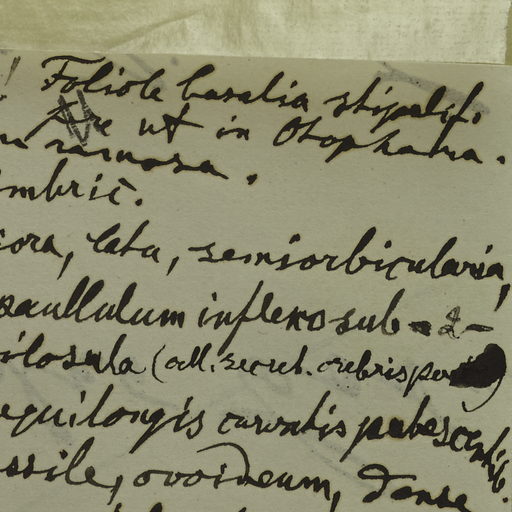 ! Foliola basalia stipulif.
ut in Otophora.
ramosa.
imbric.
iora, lata, semiorbicularia,
paullulum inflexo sub-2-
ilosula (all. secret. crebris
equilongis curvatis pubescentib.
ssile, ovoideum, dense